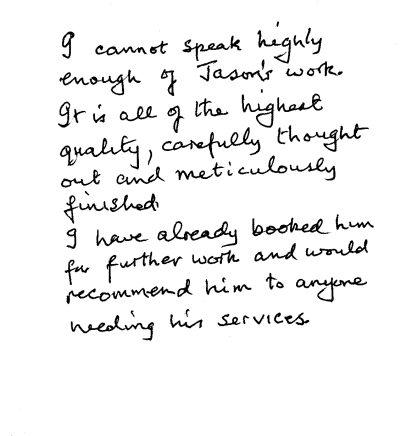 I cannot speak highly
enough of Jason's work.
It is all of the highest
quality, carefully thought
out and meticulously
finished.
I have already booked him
for further work and would
recommend him to anyone
needing his services.